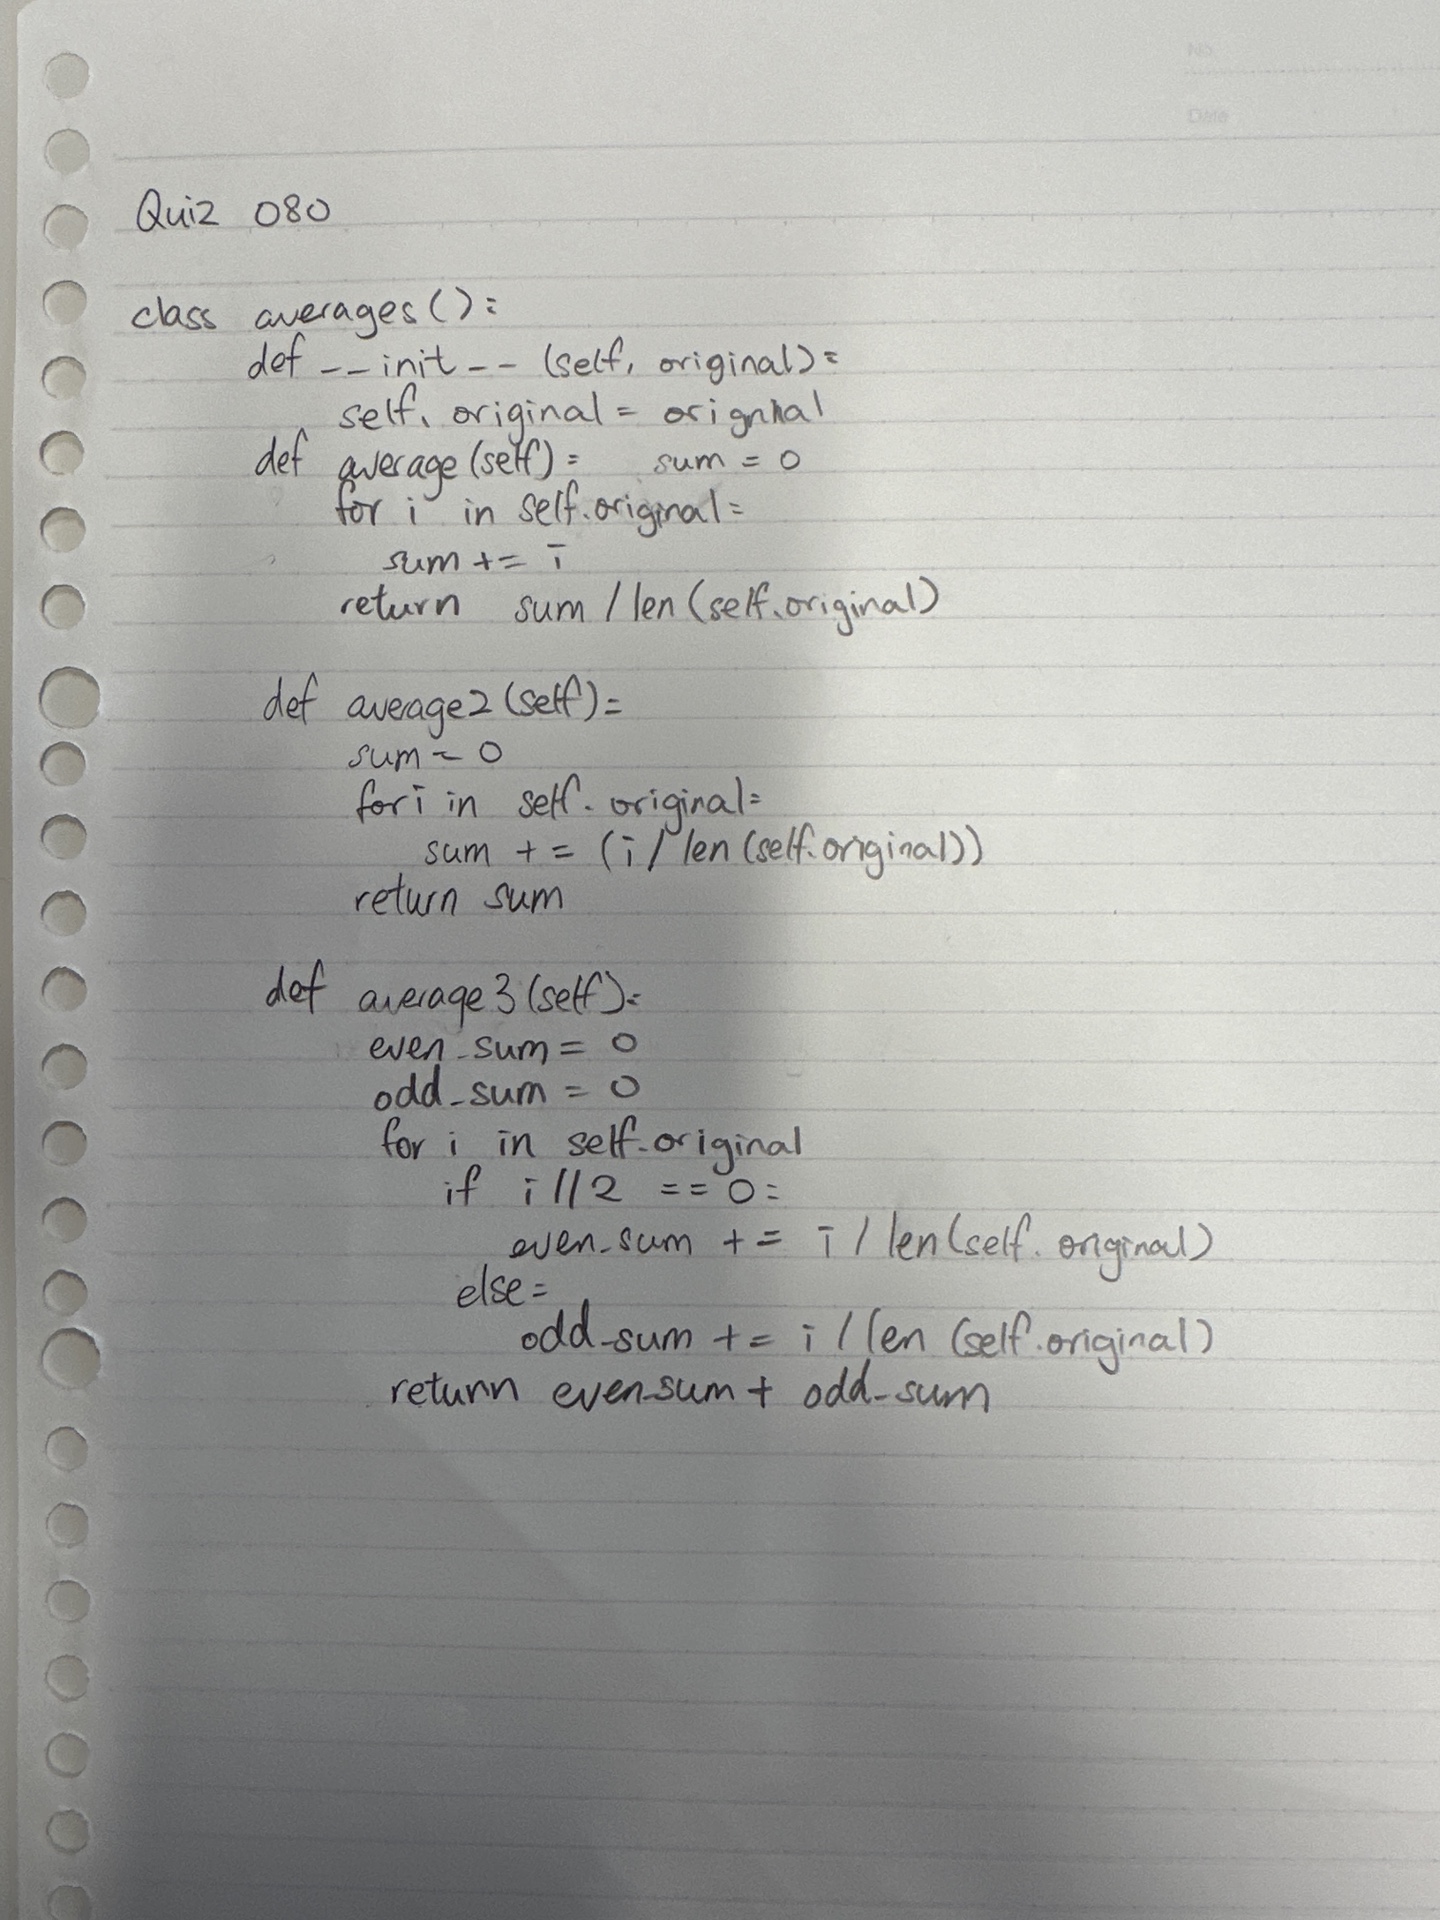 No.
Date
Quiz 080
class averages():
def __init__ (self, original):
self.original = orignhal
def average(self): sum = 0
for i in self.original:
sum += i
return sum / len(self.original)
def average2(self):
sum = 0
for i in self.original:
sum += (i / len(self.original))
return sum
def average3(self):
even_sum = 0
odd_sum = 0
for i in self.original
if i//2 == 0:
even_sum += i / len(self.original)
else:
odd_sum += i / len (self.original)
return even_sum + odd_sum